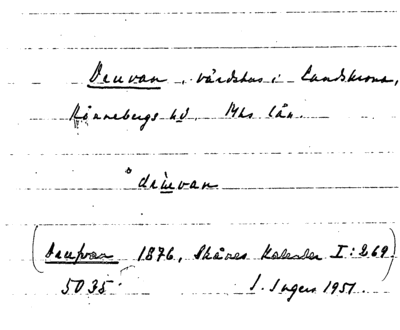 Druvan, värdshus i Landskrona,
Rönnebergs hd. Mhs län.
drùvan
(Drufvan 1876, Skånes Kalender I:269)
5035. I. Ingers 1951.